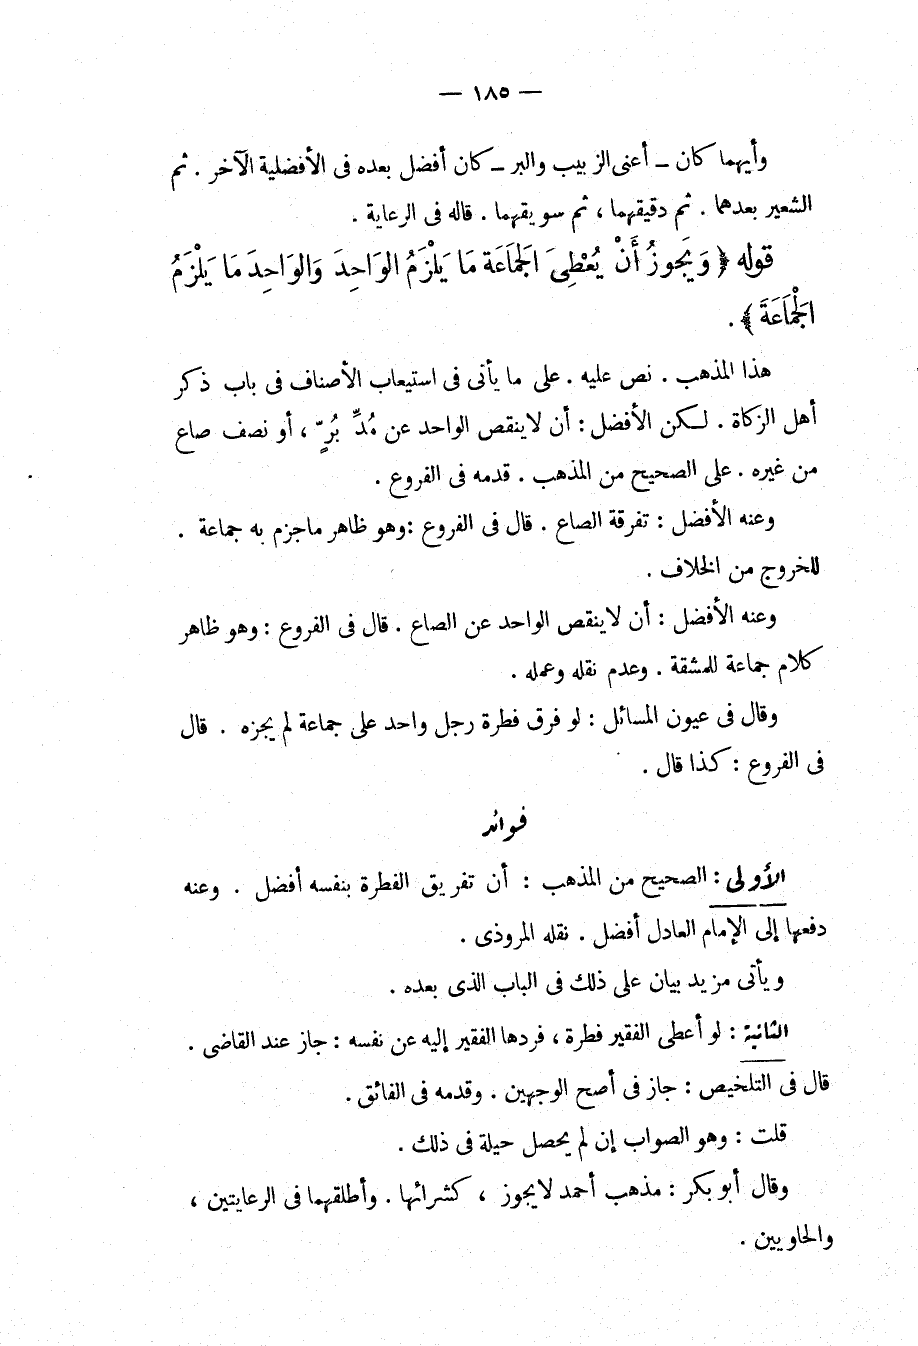 — ١٨٥ —
وأيهما كان – أعنى الزبيب والبر – كان أفضل بعده فى الأفضلية الآخر . ثم
الشعير بعدهما . ثم دقيقهما ، ثم سويقهما . قاله فى الرعاية .
قوله ﴿ وَيَجوزُ أَنْ يُعْطِىَ الجَمَاعَةَ مَا يَلْزَمُ الوَاحِدَ وَالوَاحِدَ مَا يَلْزَمُ
الْجَمَاعَةَ ﴾ .
هذا المذهب . نص عليه . على ما يأتى فى استيعاب الأصناف فى باب ذكر
أهل الزكاة . لكن الأفضل : أن لاينقص الواحد عن مُدِّ بُرٍّ ، أو نصف صاع
من غيره . على الصحيح من المذهب . قدمه فى الفروع .
وعنه الأفضل : تفرقة الصاع . قال فى الفروع : وهو ظاهر ماجزم به جماعة .
للخروج من الخلاف .
وعنه الأفضل : أن لاينقص الواحد عن الصاع . قال فى الفروع : وهو ظاهر
كلام جماعة للمشقة . وعدم نقله وعمله .
وقال فى عيون المسائل : لو فرق فطرة رجل واحد على جماعة لم يجزه . قال
فى الفروع : كذا قال .
فوائد
الأولى : الصحيح من المذهب : أن تفريق الفطرة بنفسه أفضل . وعنه
دفعها إلى الإمام العادل أفضل . نقله المروذى .
ويأتى مزيد بيان على ذلك فى الباب الذى بعده .
الثانية : لو أعطى الفقير فطرة ، فردها الفقير إليه عن نفسه : جاز عند القاضى .
قال فى التلخيص : جاز فى أصح الوجهين . وقدمه فى الفائق .
قلت : وهو الصواب إن لم يحصل حيلة فى ذلك .
وقال أبو بكر : مذهب أحمد لايجوز ، كشرائها . وأطلقهما فى الرعايتين ،
والحاويين .